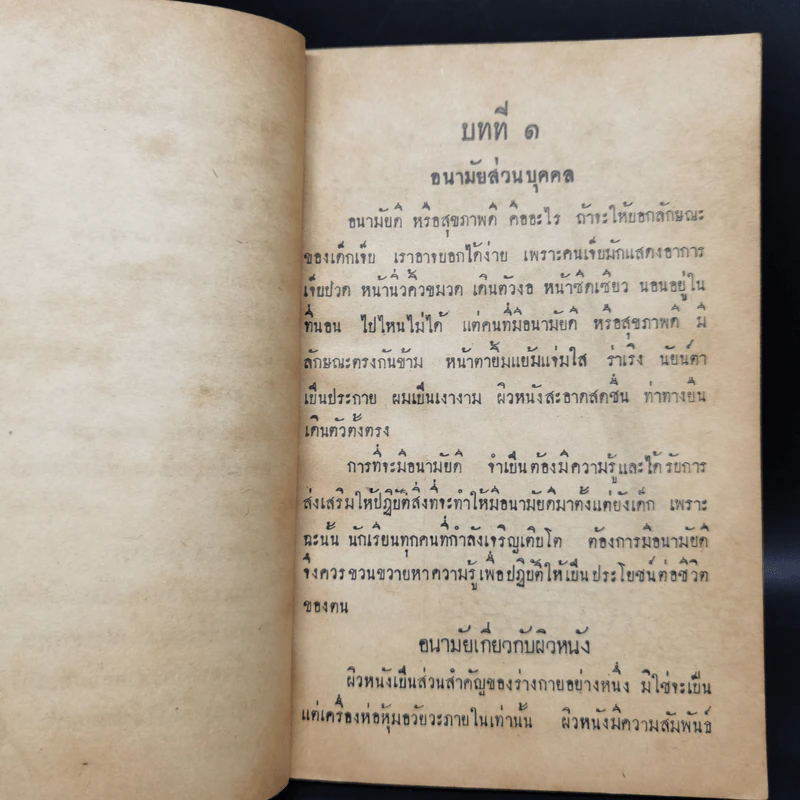 บทที่ ๑
อนามัยส่วนบุคคล
อนามัยดี หรือสุขภาพดี คืออะไร ถ้าจะให้บอกลักษณะ
ของเด็กเจ็บ เราอาจบอกได้ง่าย เพราะคนเจ็บมักแสดงอาการ
เจ็บปวด หน้านิ่วคิ้วขมวด เดินตัวงอ หน้าซีดเซียว นอนอยู่ใน
ที่นอน ไปไหนไม่ได้ แต่คนที่มีอนามัยดี หรือสุขภาพดี มี
ลักษณะตรงกันข้าม หน้าตายิ้มแย้มแจ่มใส ร่าเริง นัยน์ตา
เป็นประกาย ผมเป็นเงางาม ผิวหนังสะอาดสดชื่น ท่าทางยืน
เดินตัวตั้งตรง
การที่จะมีอนามัยดี จำเป็นต้องมีความรู้และได้รับการ
ส่งเสริมให้ปฏิบัติสิ่งที่จะทำให้มีอนามัยดีมาตั้งแต่ยังเด็ก เพราะ
ฉะนั้น นักเรียนทุกคนที่กำลังเจริญเติบโต ต้องการมีอนามัยดี
จึงควรขวนขวายหาความรู้เพื่อปฏิบัติให้เป็นประโยชน์ต่อชีวิต
ของตน
อนามัยเกี่ยวกับผิวหนัง
ผิวหนังเป็นส่วนสำคัญของร่างกายอย่างหนึ่ง มิใช่จะเป็น
แต่เครื่องห่อหุ้มอวัยวะภายในเท่านั้น ผิวหนังมีความสัมพันธ์